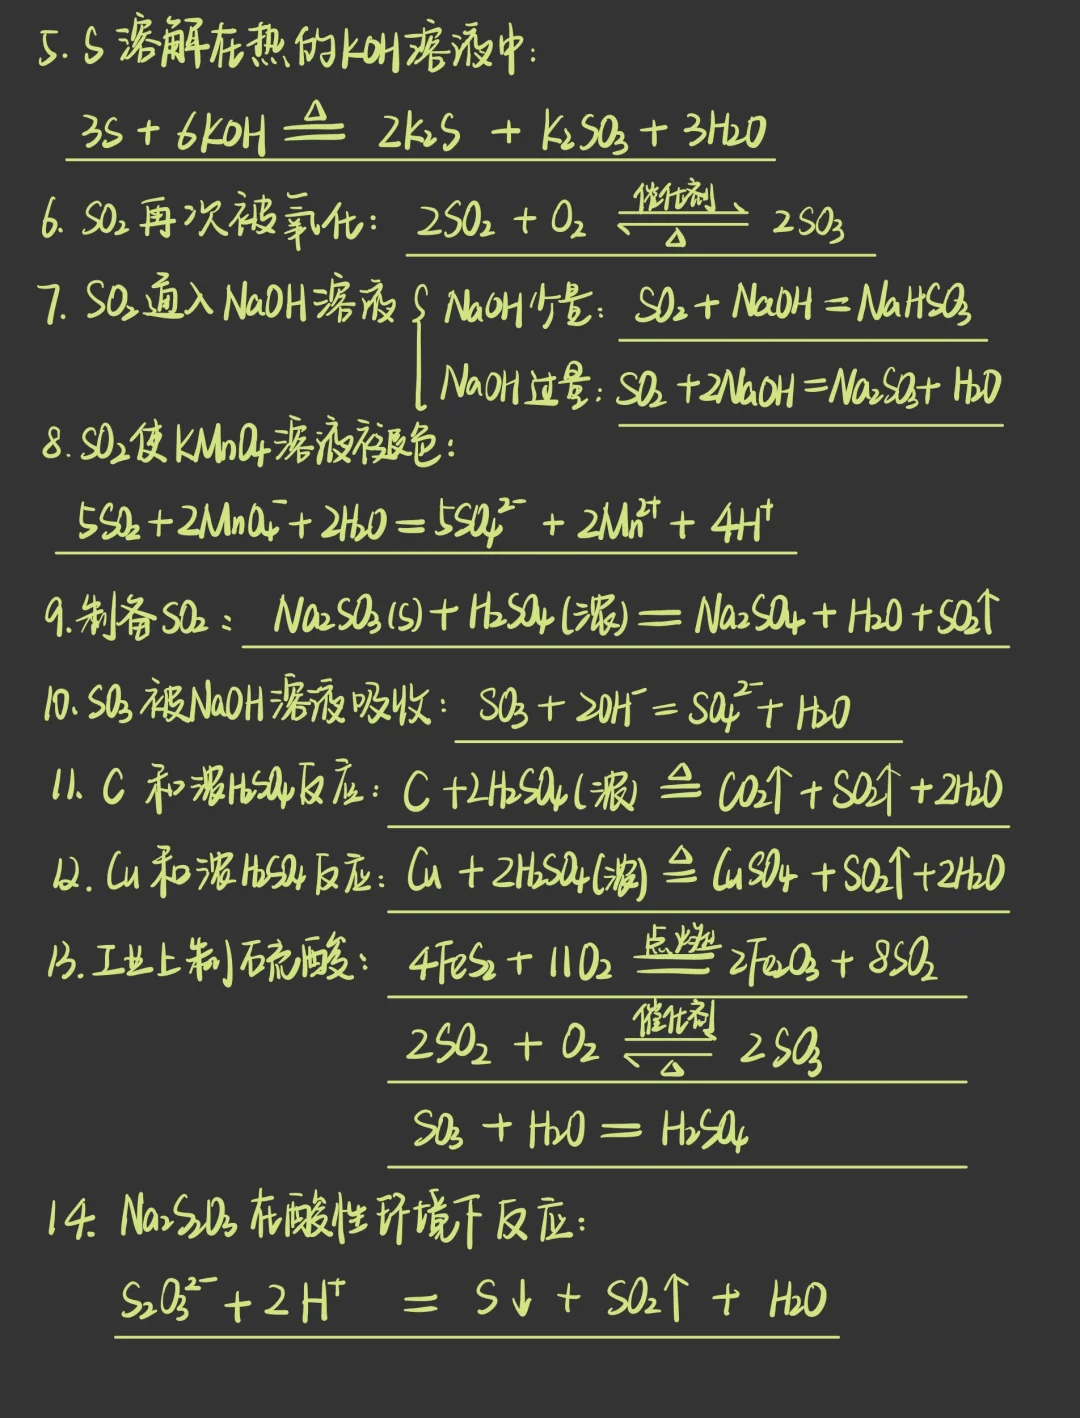 5. S 溶解在热的KOH溶液中:
3S + 6KOH ≜ 2K₂S + K₂SO₃ + 3H₂O
6. SO₂再次被氧化: 2SO₂ + O₂ ⇌ 催化剂 △ 2SO₃
7. SO₂通入NaOH溶液 { NaOH少量: SO₂ + NaOH = NaHSO₃
NaOH过量: SO₂ + 2NaOH = Na₂SO₃ + H₂O
8. SO₂使KMnO₄溶液褪色:
5SO₂ + 2MnO₄⁻ + 2H₂O = 5SO₄²⁻ + 2Mn²⁺ + 4H⁺
9. 制备SO₂: Na₂SO₃(s) + H₂SO₄(浓) = Na₂SO₄ + H₂O + SO₂↑
10. SO₃被NaOH溶液吸收: SO₃ + 2OH⁻ = SO₄²⁻ + H₂O
11. C 和浓H₂SO₄反应: C + 2H₂SO₄(浓) ≜ CO₂↑ + SO₂↑ + 2H₂O
12. Cu和浓H₂SO₄反应: Cu + 2H₂SO₄(浓) ≜ CuSO₄ + SO₂↑ + 2H₂O
13. 工业上制硫酸: 4FeS₂ + 11O₂ 点燃 = 2Fe₂O₃ + 8SO₂
2SO₂ + O₂ ⇌ 催化剂 △ 2SO₃
SO₃ + H₂O = H₂SO₄
14. Na₂S₂O₃在酸性环境下反应:
S₂O₃²⁻ + 2H⁺ = S↓ + SO₂↑ + H₂O